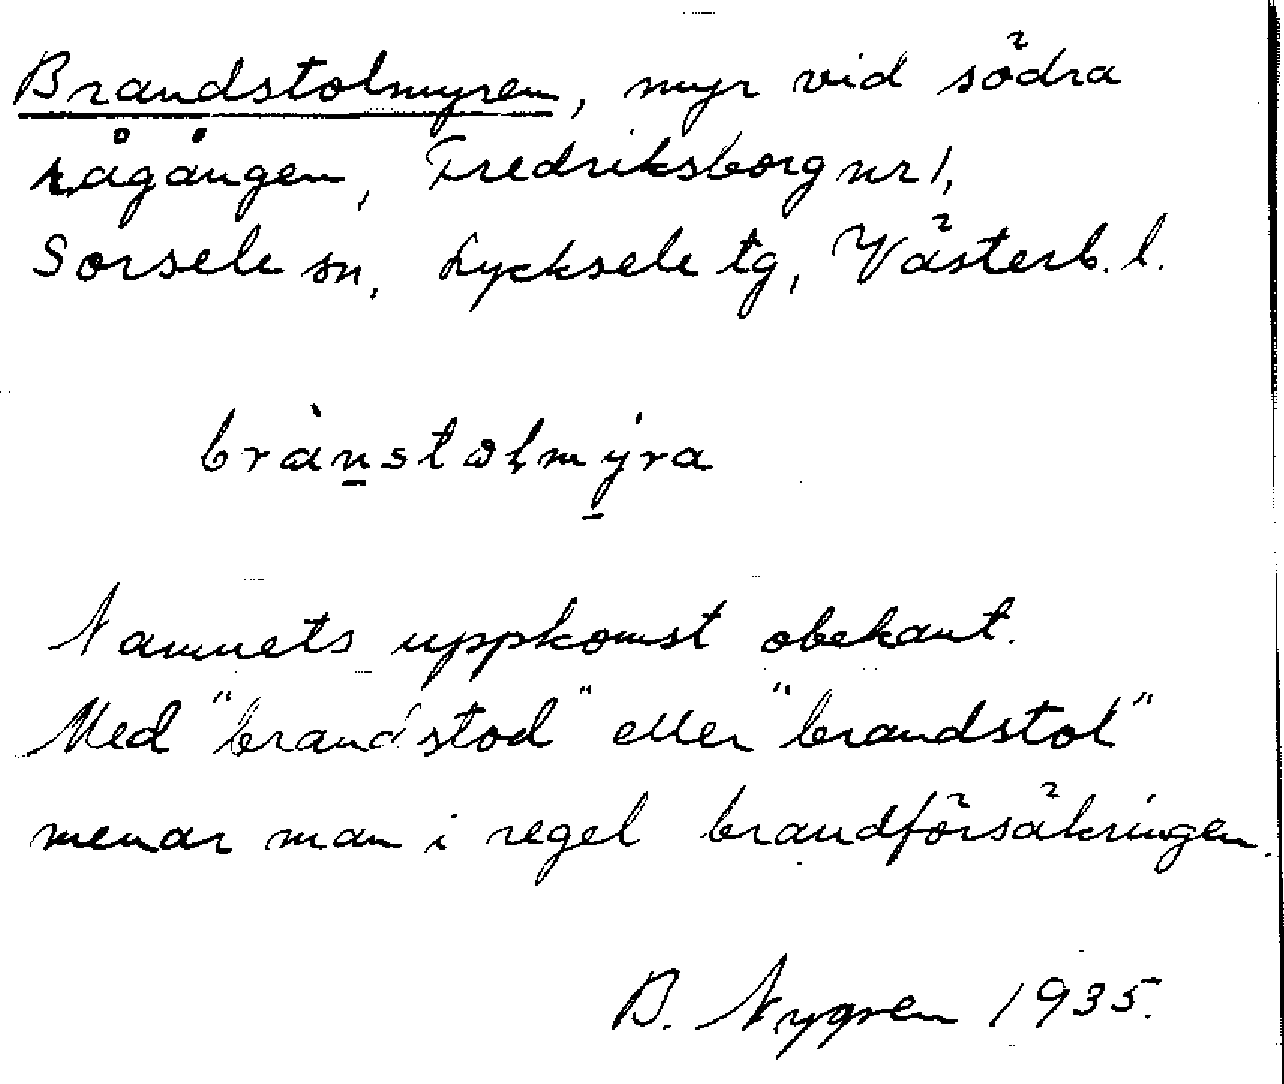 Brandstolmyren, myr vid södra
rågången, Fredriksborg nr 1,
Sorsele sn, Lycksele tg, Västerb. l.
brànstolmýra
Namnets uppkomst obekant.
Med "brandstod" eller "brandstol"
menar man i regel brandförsäkringen.
B. Nygren 1935.